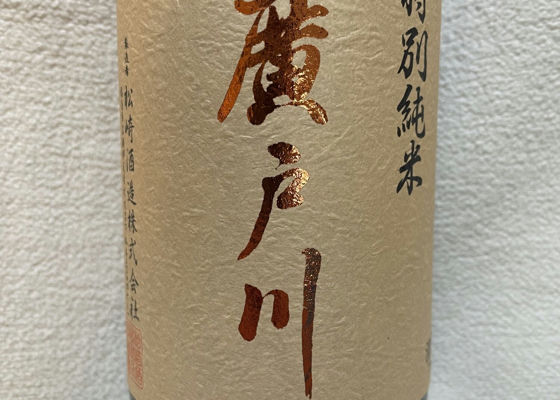 特別純米
廣戸川
製造者 松崎酒造株式会社